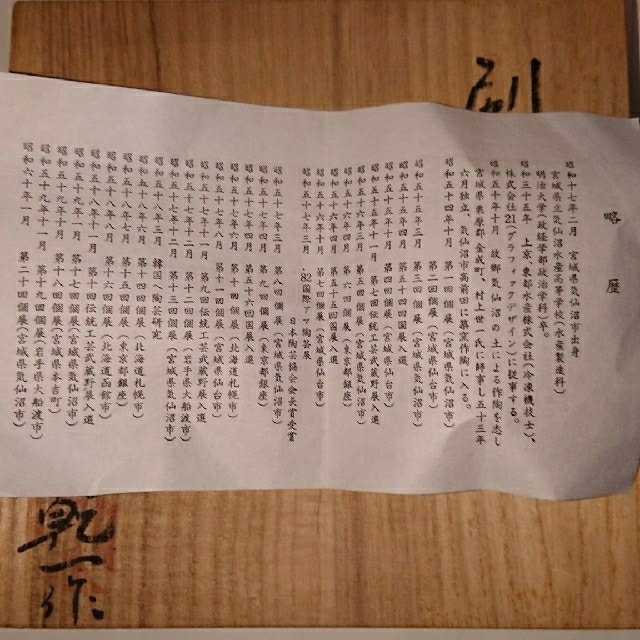 略歴
昭和十七年二月　宮城県気仙沼市出身
宮城県立気仙沼水産高等学校(水産製造科)
明治大学(政経学部政治学科)卒。
昭和三十五年　上京、東都水産株式会社(冷凍機技士)、
株式会社21(グラフィックデザイン)に従事する。
昭和五十年十月　故郷気仙沼の土による作陶を志し
宮城県栗原郡金成町、村上世一氏に師事し五十三年
六月独立、気仙沼市高前田に築窯作陶に入る。
昭和五十四年　第一回個展(宮城県気仙沼市)
第二回個展(宮城県仙台市)
昭和五十五年三月　第三回個展(宮城県気仙沼市)
昭和五十五年四月　第五十四回国展入選
昭和五十五年十一月　第七回伝統工芸武蔵野展入選
昭和五十六年三月　第五回個展(宮城県気仙沼市)
昭和五十六年四月　第六回個展(東京都銀座)
昭和五十六年四月　第五十五回国展入選
昭和五十六年十月　第七回個展(宮城県仙台市)
昭和五十七年十月　'82国際アート陶芸展
日本陶芸協会会長賞受賞
昭和五十七年三月　第八回個展(宮城県気仙沼市)
昭和五十七年四月　第九回個展(東京都銀座)
昭和五十七年四月　第五十六回国展入選
昭和五十七年六月　第十回個展(宮城県仙台市)
昭和五十七年八月　第十一回個展(北海道札幌市)
昭和五十七年十一月　第九回伝統工芸武蔵野展入選
昭和五十七年十一月　第十二回個展(岩手県大船渡市)
昭和五十七年十二月　第十三回個展(宮城県気仙沼市)
昭和五十八年三月　韓国へ陶芸研究
昭和五十八年六月　第十四回個展(北海道札幌市)
昭和五十八年十月　第十五回個展(東京都銀座)
昭和五十八年十一月　第十六回個展(北海道函館市)
昭和五十八年十一月　第十回伝統工芸武蔵野展入選
昭和五十九年一月　第十七回個展(宮城県気仙沼市)
昭和五十九年十月　第十八回個展(宮城県本吉町)
昭和五十九年十一月　第十九回個展(岩手県大船渡市)
昭和六十年一月　第二十回個展(宮城県気仙沼市)
乾一作